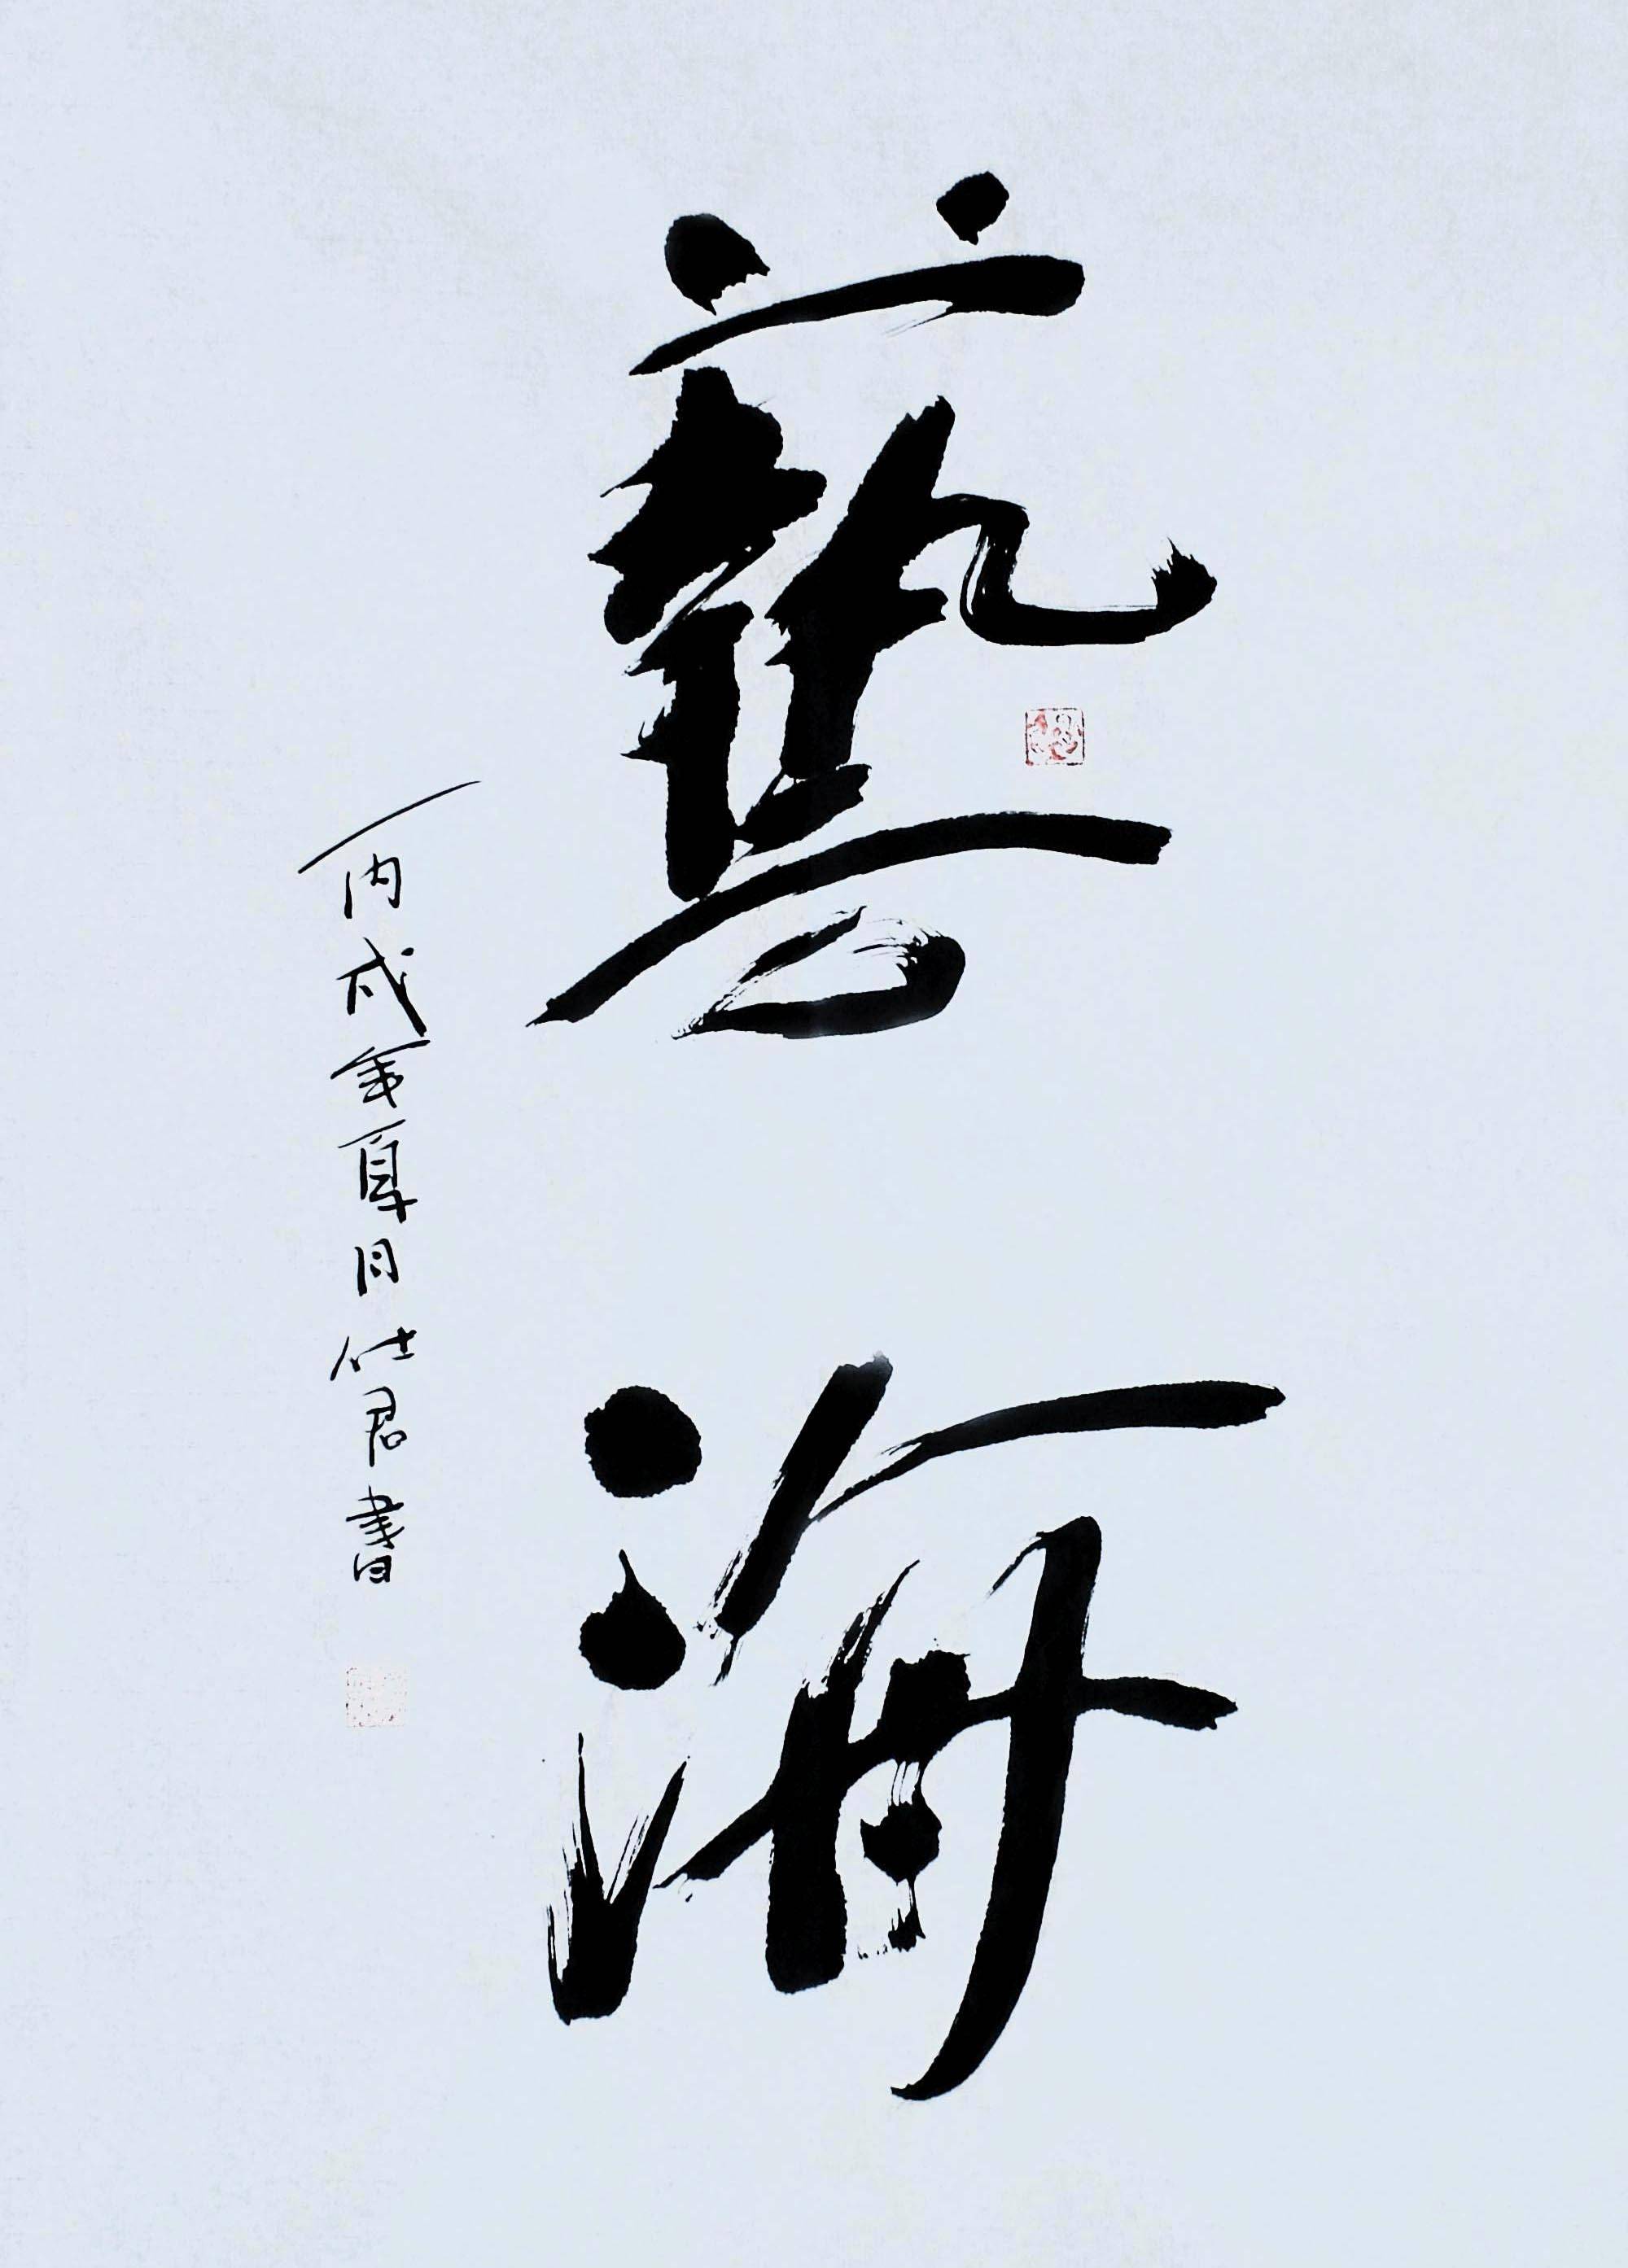 藝海
丙戌年夏月仕君書